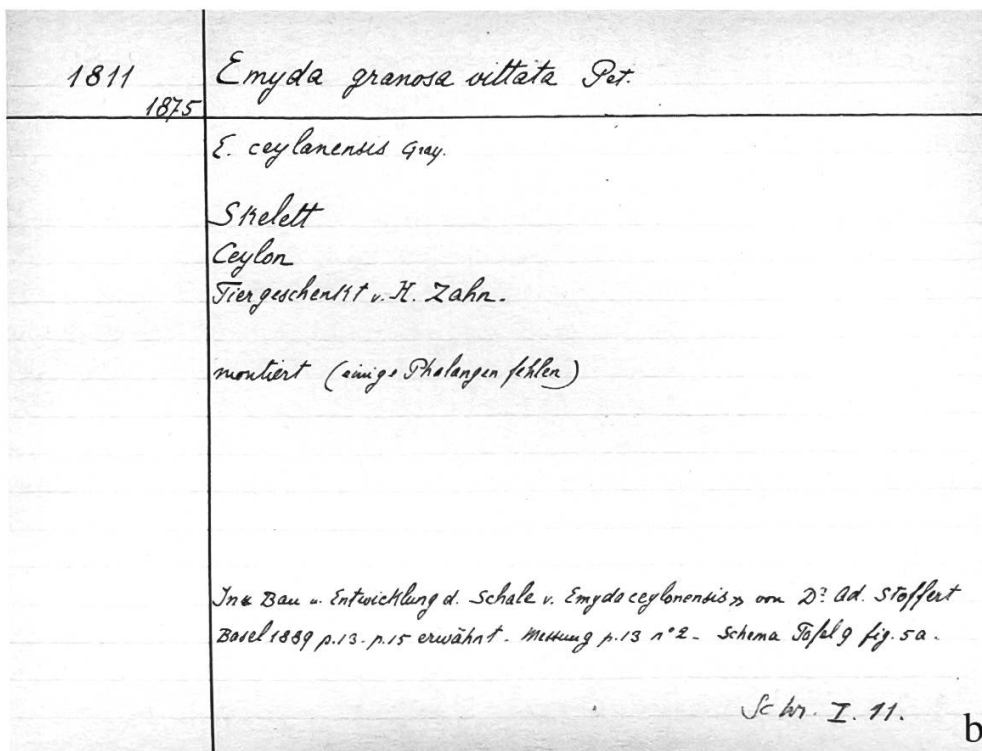 1811 Emyda granosa vittata Pet.
1875
E. ceylanensis Gray.
Skelett
Ceylon
Tier geschenkt v. H. Zahn.
montiert (einige Phalangen fehlen)
In « Bau u. Entwicklung d. Schale v. Emyda ceylonensis » von Dr Ad. Stoffert
Basel 1889 p. 13. p. 15 erwähnt - Messung p. 13 n° 2 - Schema Tafel 9 fig. 5a.
Schr. I. 11.
b